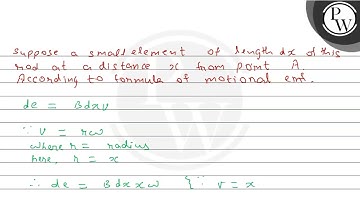 Suppose a small element of length dx of this
rod at a distance x from point A.
According to formula of motional emf.
de = Bdxv
∵ v = rω
where r = radius
here, r = x
∴ de = Bdx xω {∵ r = x
PW